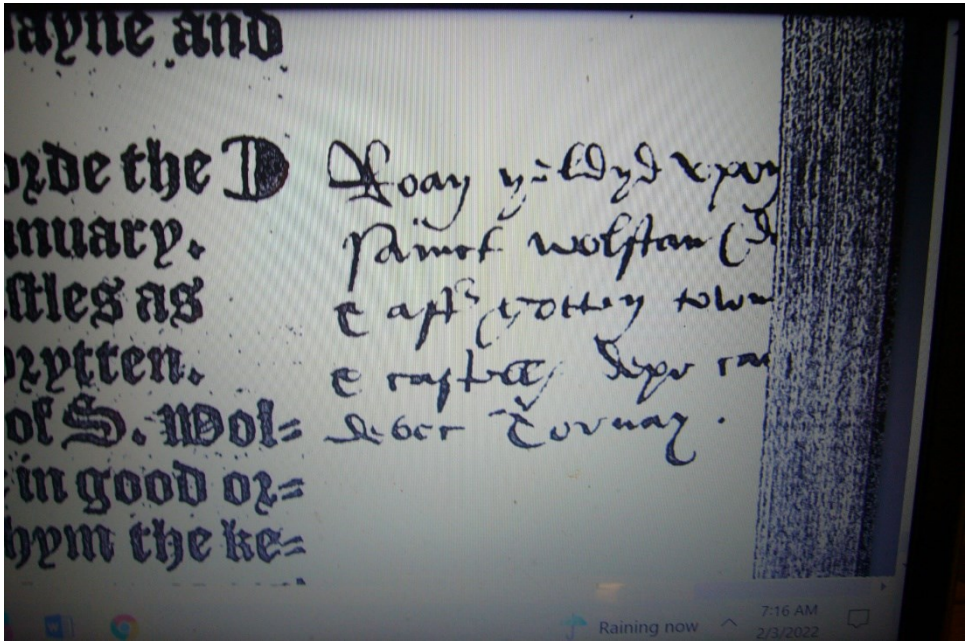 ayne and
orde the D
anuary.
stles as
orytten.
of S. Wol=
in good or=
hym the ke=
Roan yeldyd vpon
sainct wolstan
gotten town
castell
Tornay.
Raining now
7:16 AM
2/3/2022